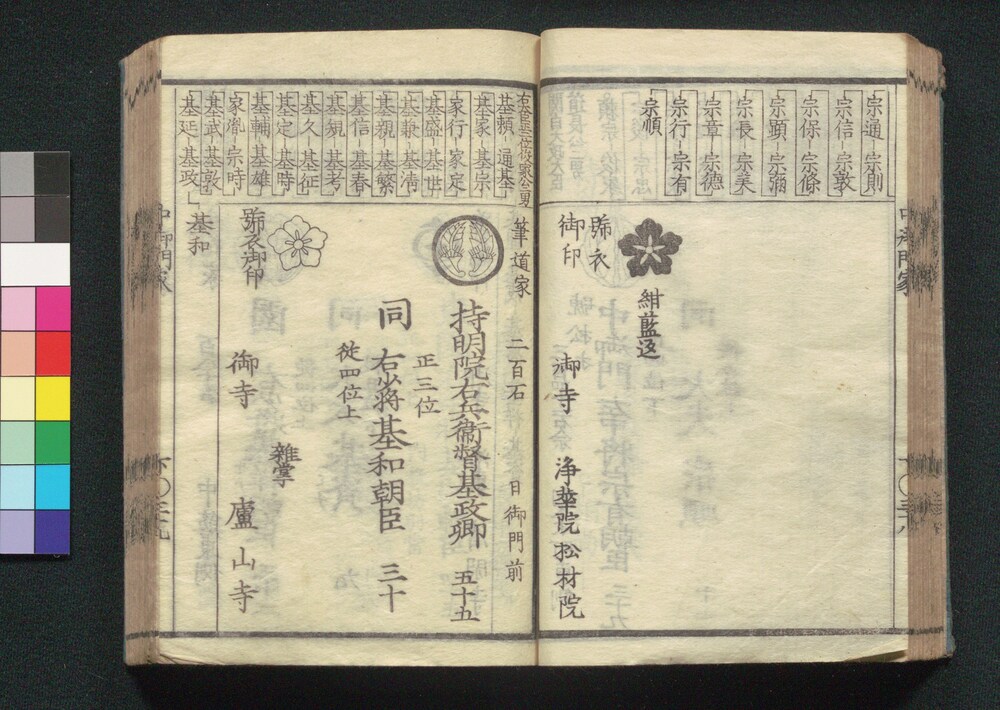 宗通 宗則
宗信 宗敦
宗保 宗條
宗顕 宗彌
宗長 宗美
宗章 宗德
宗行 宗有
宗順
紺藍返
號衣
御印
御寺 浄華院 松材院
基頼 通基
基家 基宗
家行 家定
基盛 基世
基兼 基清
基親 基繁
基信 基春
基規 基孝
基久 基征
基定 基時
基輔 基雄
家胤 宗時
基武 基敦
基延 基政
基和
筆道家 二百石 日御門前
持明院右兵衛督基政卿 五十五
正三位
同 右少将基和朝臣 三十
従四位上
雜掌
號衣御印
御寺 盧山寺